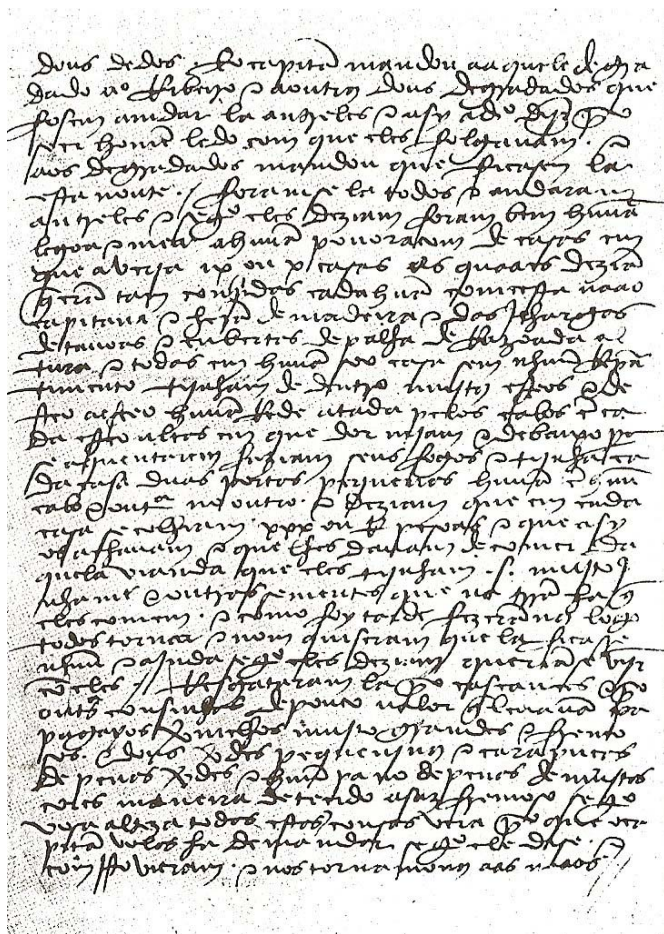 dous dedos. / E o capitã mandou aaquele degra
dado aº Ribeiro e a outros dous degradados que
fosem amdar la antreles e asy a dº dijz por
seer homem ledo com que eles folgauam. e
aos degradados mandou que ficasem la
esta noute. / foramse la todos e andaram
antreles e segº eles deziam foram bem huũa
legoa e mea a huũa pouoraçom de casas em
que averja ix ou x casas as quaaes deziã
q̃ erã tam conpridas cada huũa comeesta naao
capitana. e herã de madeira e das jlhargas
de tauoas e cubertas de palha de Razoada al
tura e todas em huũa soo casa sem nhuũ Repar
timento tijnham de dentro mujtos esteos e de
steo a esteo huũa Rede atada pelos cabos ẽ ca
da esteo altas em que dormjam e debaixo pa
se aquentarem faziam seus fogos e tijnha ca
da casa duas portas pequenas huũa ẽ huũ
cabo e outª no outro. e deziam que em cada
casa se colhiam xxx ou R pesoas e que asy
os achauam e que lhes dauam de comer da
quela vianda que eles tijnham .s. mujto j
nhame e outras sementes que na trã ha q̃
eles comem. e como foy tarde fezerãnos logo
todos tornar e nom quiseram que la ficase
nhuũ e ajnda segº eles deziam queriãse vijr
cõ eles. / Resgataram la por cascauees e por
outªs cousinhas de pouco ualor q̃ leuauã pa
pagayos vermelhos mujto grandes e fremo
sos. e dous vdes pequenjnos e carapuças
de penas vdes e huũ pano de penas de mujtas
cores maneira de tecido asaz fremoso segº
vosa alteza todas estas cousas vera por que o ca
pitã volas ha de mandar segº ele dise. e
com jsto vieram. e nos tornamonos aas naaos. //